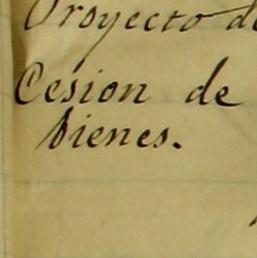 Proyecto de
Cesion de
bienes.